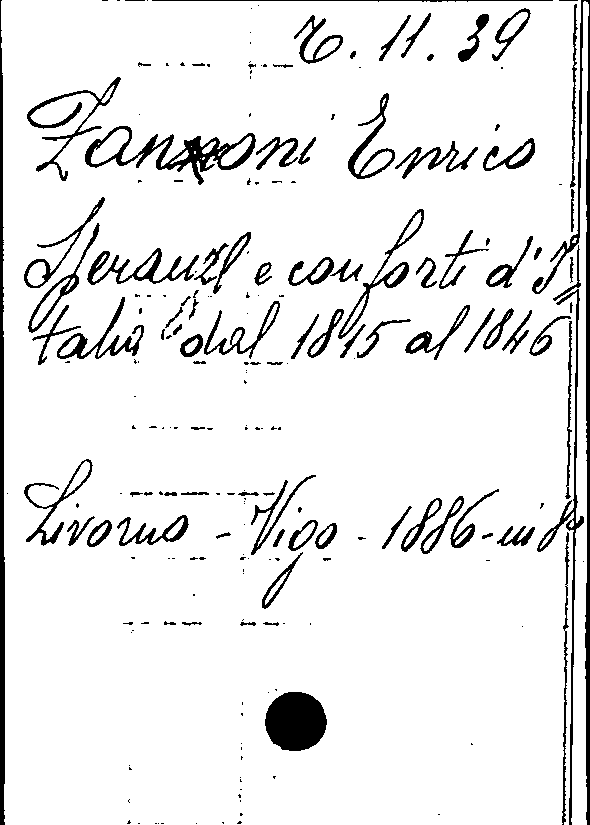 7. 11. 39
Zanzoni Enrico
Speranze e conforti d'I=
talia dal 1815 al 1846
Livorno - Vigo - 1886 - in 8°